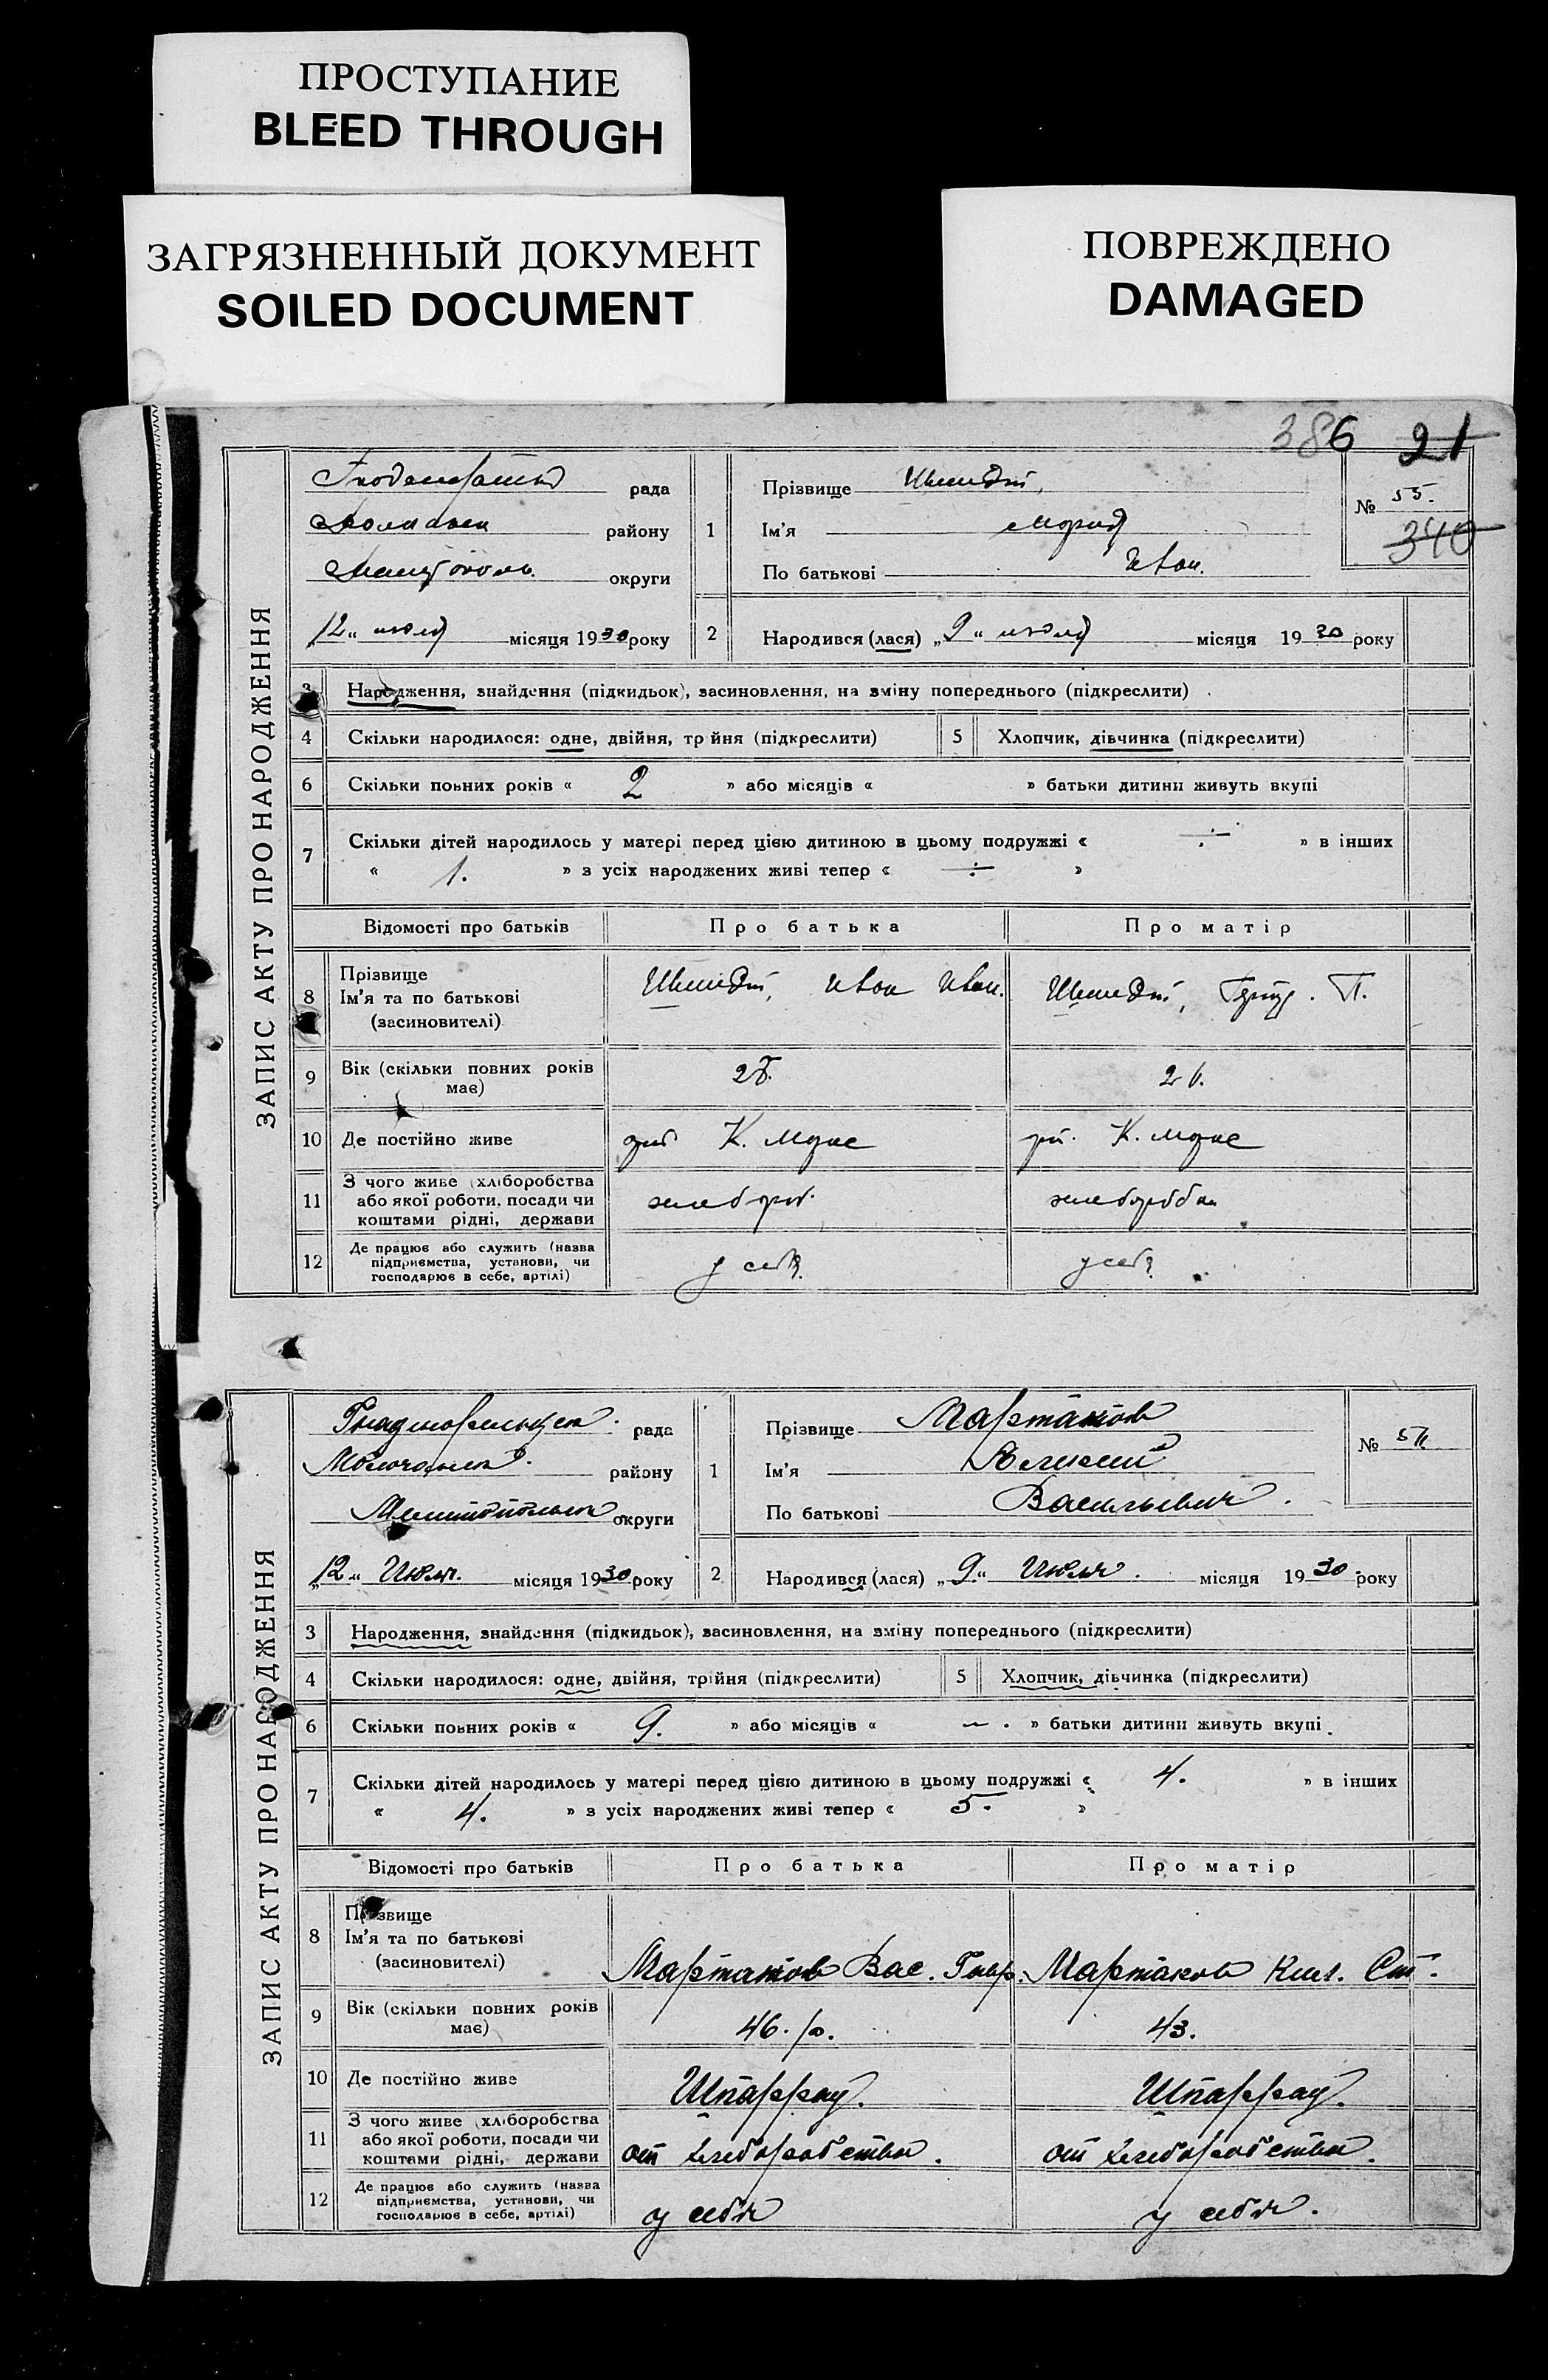 ПРОСТУПАНИЕ
BLEED THROUGH
ЗАГРЯЗНЕННЫЙ ДОКУМЕНТ
SOILED DOCUMENT
ПОВРЕЖДЕНО
DAMAGED
386 21
ЗАПИС АКТУ ПРО НАРОДЖЕННЯ
рада
району
округи
„12“ июля місяця 1930 року
1
Прізвище Шмидт,
Ім'я Мария
По батькові Иван.
№ 55.
340
2
Народився (лася) „9“ июля місяця 1930 року
3 Народження, знайдення (підкидьок), засиновлення, на зміну попереднього (підкреслити)
4 Скільки народилося: одне, двійня, трійня (підкреслити) 5 Хлопчик, дівчинка (підкреслити)
6 Скільки повних років « 2 » або місяців « » батьки дитини живуть вкупі
7 Скільки дітей народилось у матері перед цією дитиною в цьому подружжі « ÷ » в інших
« 1. » з усіх народжених живі тепер « ÷ »
Відомості про батьків Про батька Про матір
8 Прізвище
Ім'я та по батькові
(засиновителі)
Шмидт, Иван Иван. Шмидт, П.
9 Вік (скільки повних років
має)
28. 26.
10 Де постійно живе К. К.
11 З чого живе (хліборобства
або якої роботи, посади чи
коштами рідні, держави
хлебороб.
12 Де працює або служить (назва
підприємства, установи, чи
господарює в себе, артілі)
у себя у себя
ЗАПИС АКТУ ПРО НАРОДЖЕННЯ
рада
Молочанск. району
Мелитопольск округи
„12“ Июля. місяця 1930 року
1
Прізвище Мартаков
Ім'я Алексей
По батькові Васильевич.
№
2
Народився (лася) „9.“ Июля. місяця 1930 року
3 Народження, знайдення (підкидьок), засиновлення, на зміну попереднього (підкреслити)
4 Скільки народилося: одне, двійня, трійня (підкреслити) 5 Хлопчик, дівчинка (підкреслити)
6 Скільки повних років « 9. » або місяців « – . » батьки дитини живуть вкупі.
7 Скільки дітей народилось у матері перед цією дитиною в цьому подружжі « 4. » в інших
« 4. » з усіх народжених живі тепер « 5. »
Відомості про батьків Про батька Про матір
8 Прізвище
Ім'я та по батькові
(засиновителі)
Мартаков Вас. Мартаков Ст.
9 Вік (скільки повних років
має)
46. 43.
10 Де постійно живе Шпаррау. Шпаррау.
11 З чого живе (хліборобства
або якої роботи, посади чи
коштами рідні, держави
от хлеборобства. от хлеборобства.
12 Де працює або служить (назва
підприємства, установи, чи
господарює в себе, артілі)
у себя у себя.